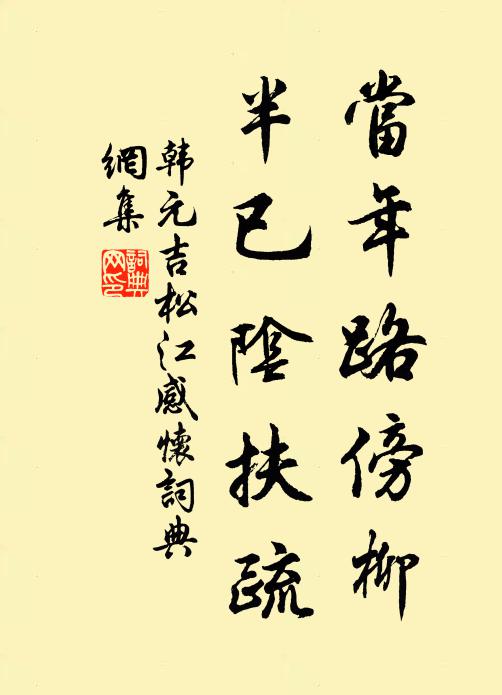 當年路傍柳
半已陰扶疏
韩元吉松江感懷詞典
網集
詞典
网印